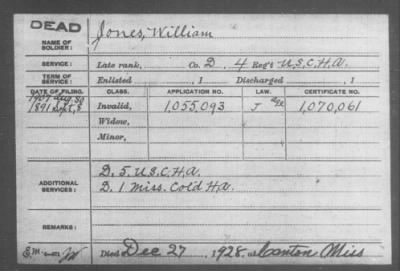 DEAD
NAME OF SOLDIER: Jones, William
SERVICE: Late rank, Co. D, 4 Reg't U.S.C.H.A.
TERM OF SERVICE: Enlisted , 1 Discharged , 1
DATE OF FILING. CLASS. APPLICATION NO. LAW. CERTIFICATE NO.
1907 Aug. 30
1891 Sept. 8 Invalid, 1,055,093 J 1,070,061
Widow,
Minor,
ADDITIONAL SERVICES: D. 5. U.S.C.H.A.
D. 1 Miss. Cold H.A.
REMARKS:
Died Dec 27, 1928. at Canton Miss